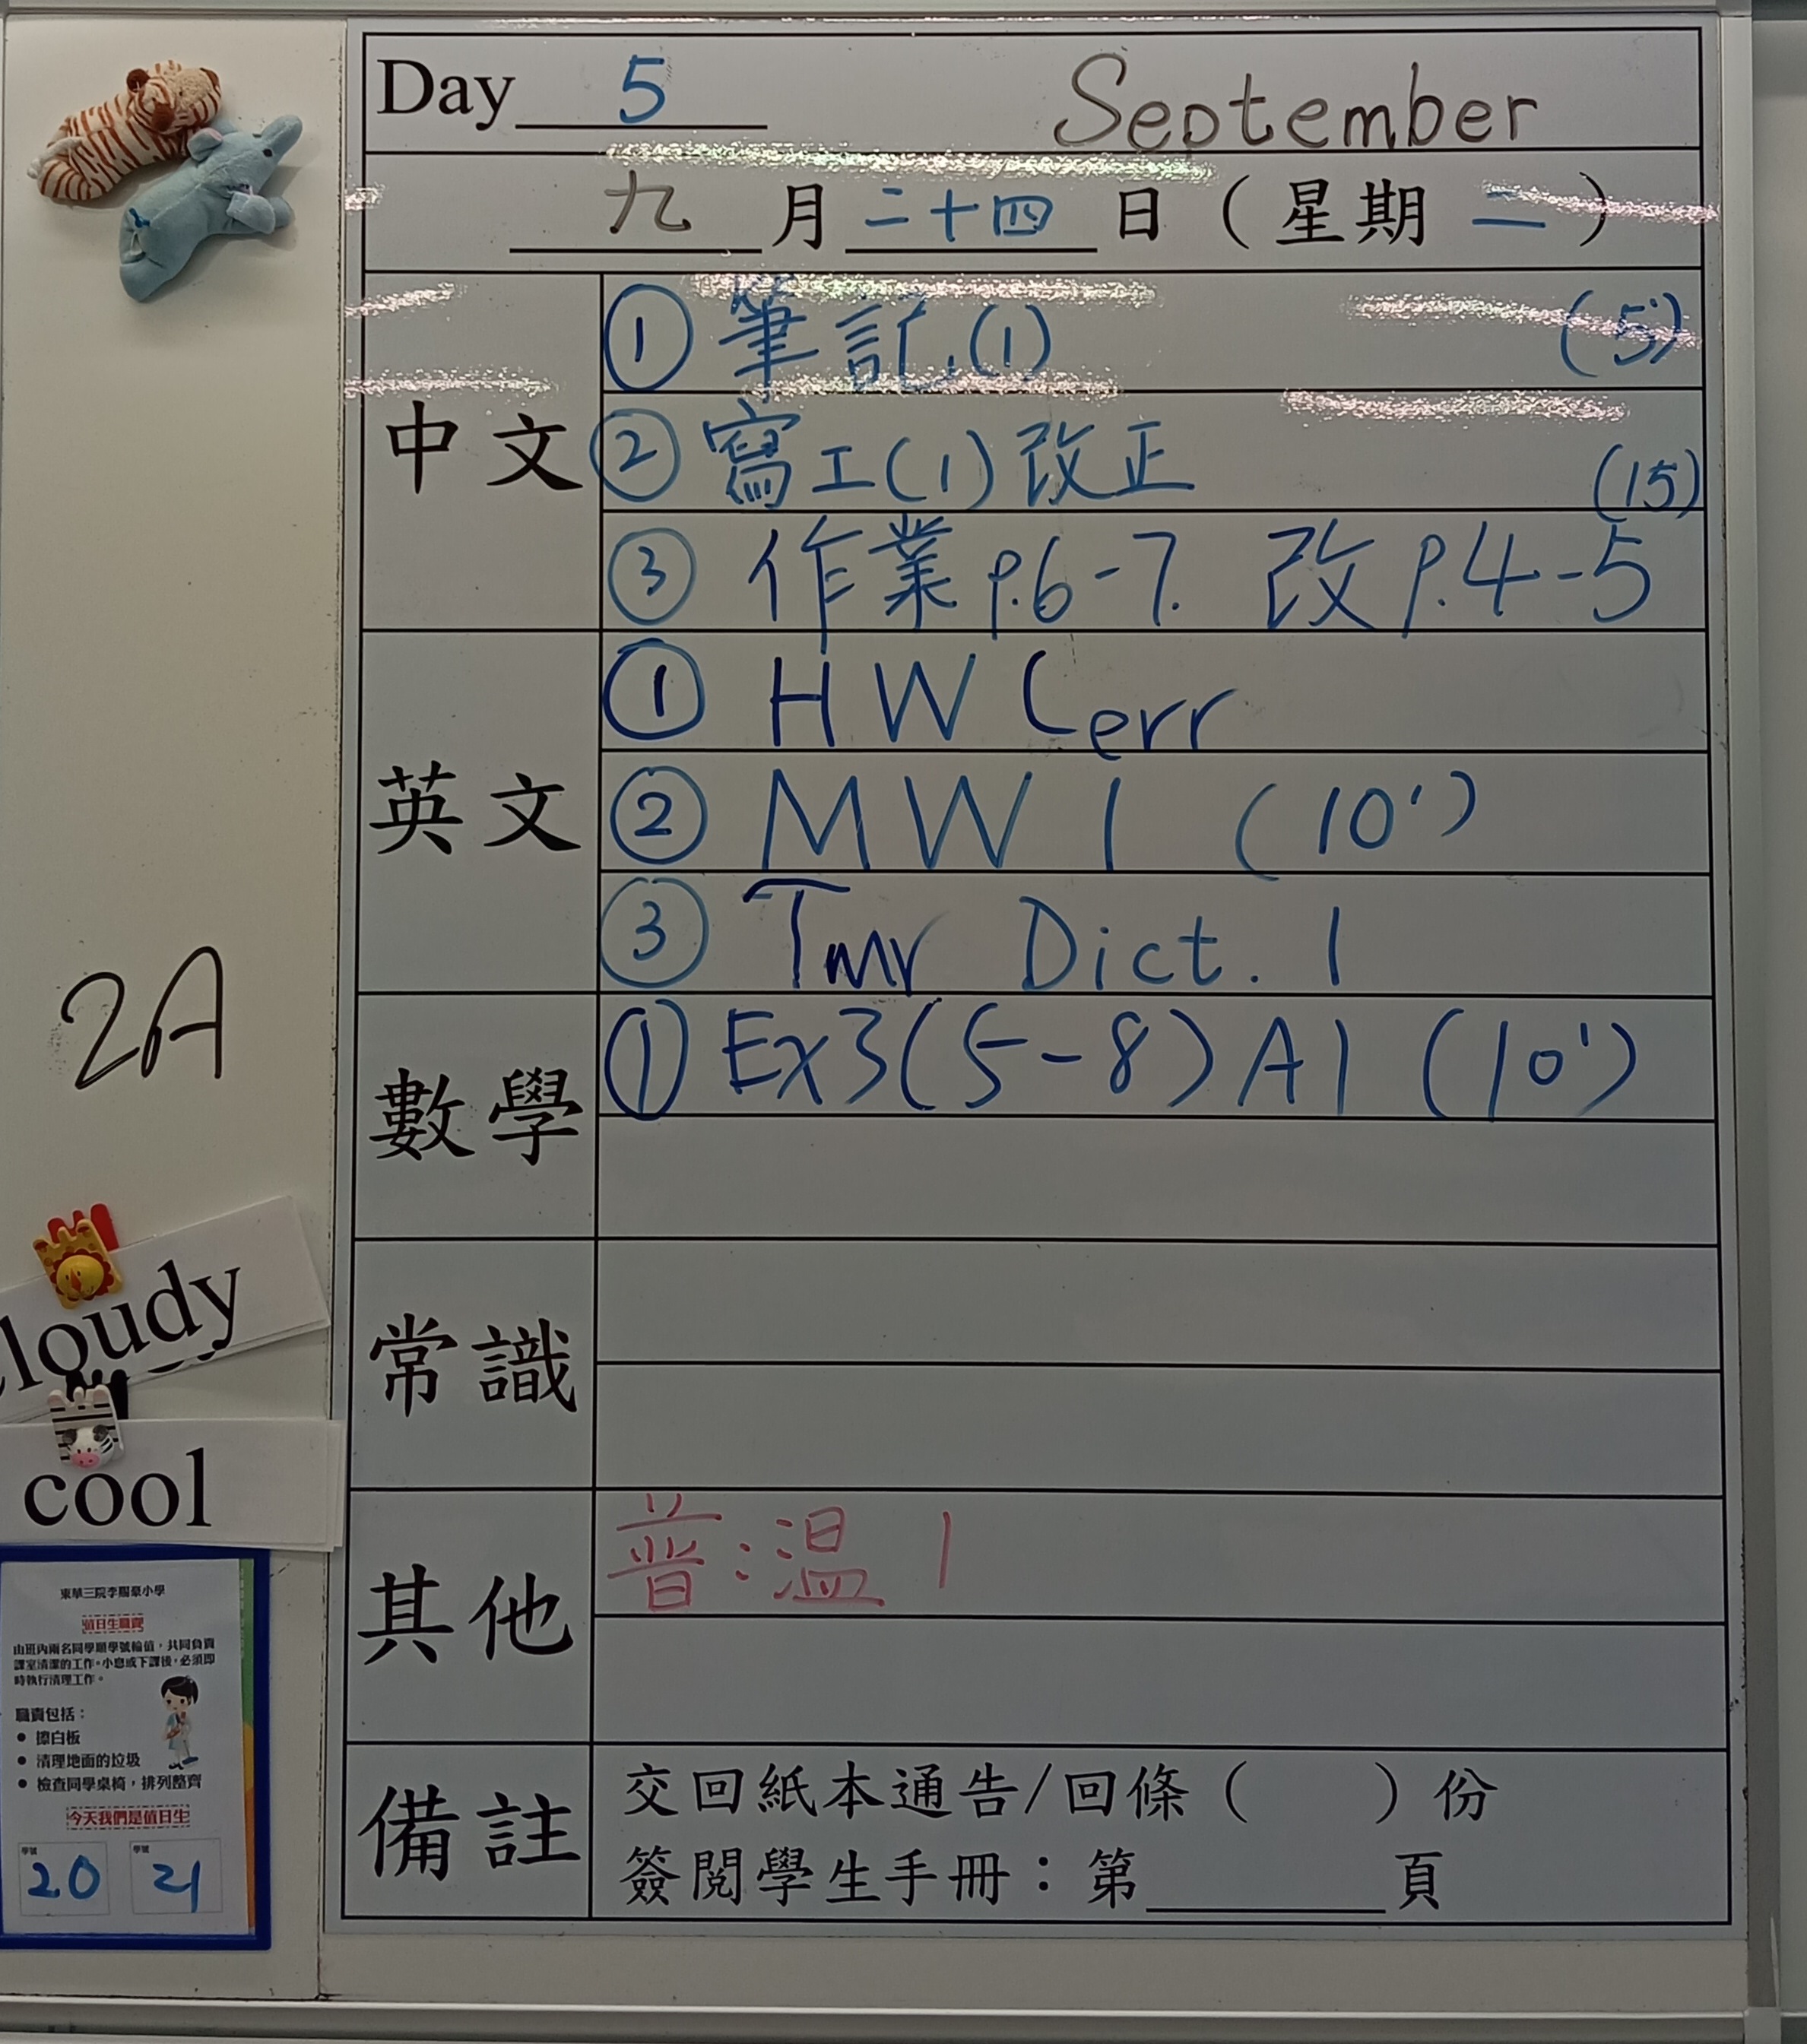 Day 5 September
九月二十四日（星期二）
中文
① 筆記(1) (5')
② 寫工(1)改正 (15)
③ 作業p.6-7. 改p.4-5
英文
① HW Cerr
② MW 1 (10')
③ Tmr Dict. 1
數學
① Ex3(5-8)A1 (10')
常識
其他
普:温1
備註
交回紙本通告/回條（ ）份
簽閱學生手冊：第 頁
2A
loudy
cool
東華三院李賜豪小學
值日生職責
由班內兩名同學順學號輪值，共同負責
課室清潔的工作。小息或下課後，必須即
時執行清理工作。
職責包括：
• 擦白板
• 清理地面的垃圾
• 檢查同學桌椅，排列整齊
今天我們是值日生
學號 學號
20 21